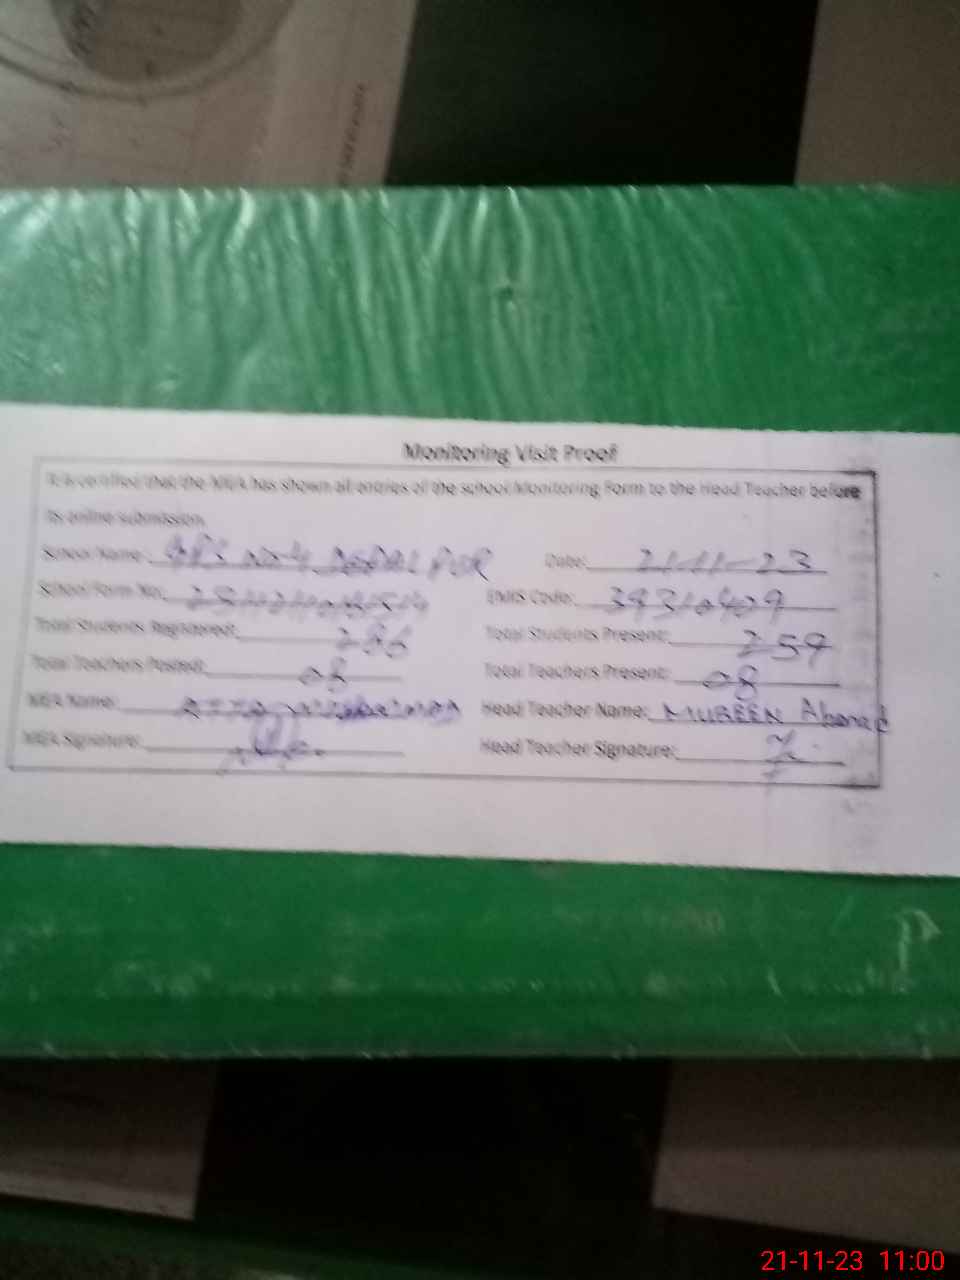 Monitoring Visit Proof
It is certified that the MEA has shown all entries of the school Monitoring Form to the Head Teacher before
its online submission.
School Name: No-4 PUR Date: 21-11-23
School Form No. EMIS Code: 39310409
Total Students Registered: 286 Total Students Present: 259
Total Teachers Posted: 08 Total Teachers Present: 08
MEA Name: Head Teacher Name: MUBEEN Ahmad
MEA Signature: Head Teacher Signature:
21-11-23 11:00